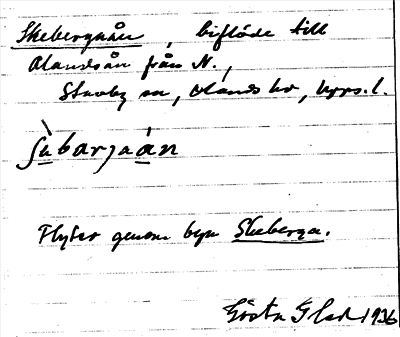 Skebergaån, biflöde till
Olandsån från N.,
Stavby sn, Olands hd, Upps. l.
ʃɛ̀barjaán
Flyter genom byn Skeberga.
Gösta Glad 1936